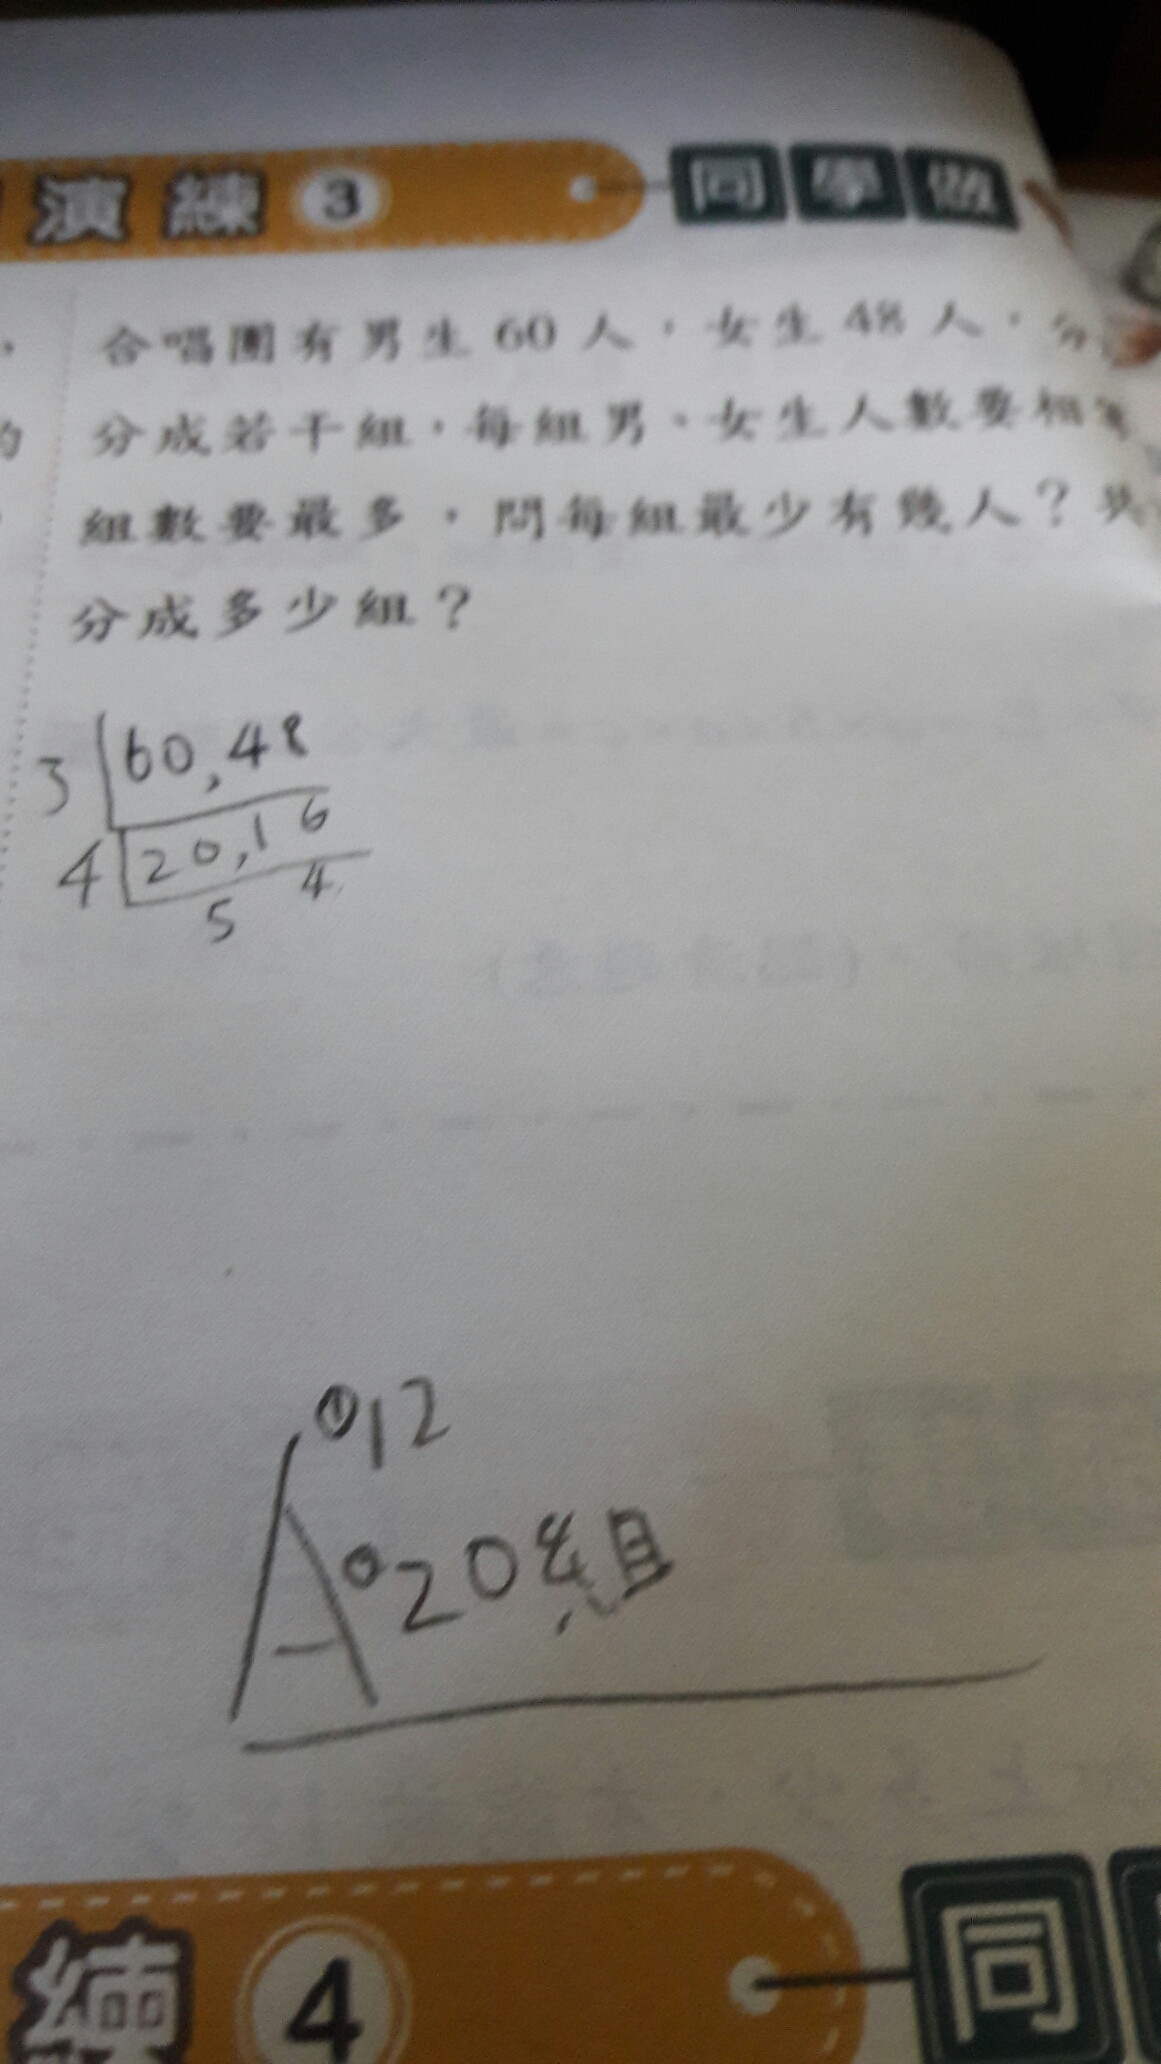 演練 3 同學做
合唱團有男生 60 人,女生 48 人,分
分成若干組,每組男、女生人數要相等
組數要最多,問每組最少有幾人?共
分成多少組?
,
的
3 60,48
4 20,16
5 4
A ① 12
② 20組
練 4 同